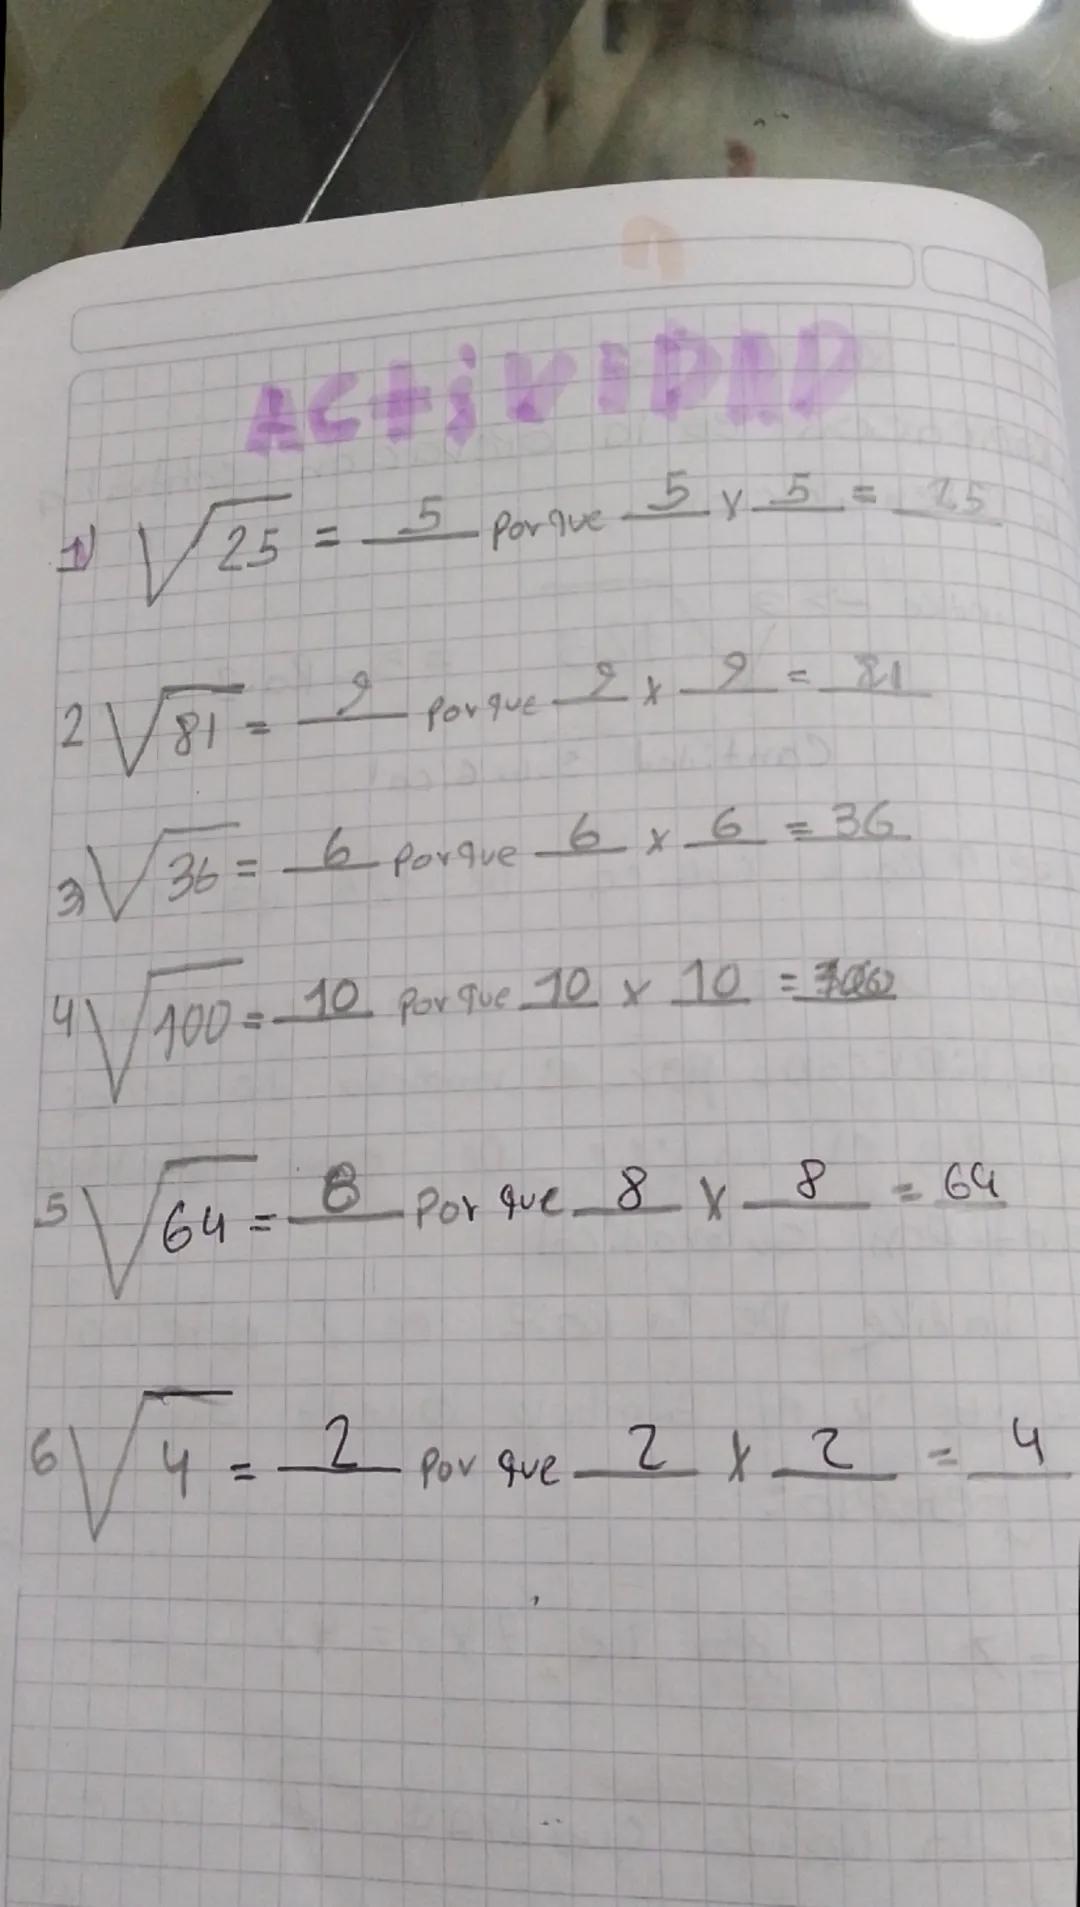 ACtiVIDAD
1) √25 = 5 porque 5 x 5 = 25
2 √81 = 9 porque 9 x 9 = 81
3) √36 = 6 porque 6 x 6 = 36
4 √100 = 10 porque 10 x 10 = 100
5 √64 = 8 porque 8 x 8 = 64
6 √4 = 2 porque 2 x 2 = 4